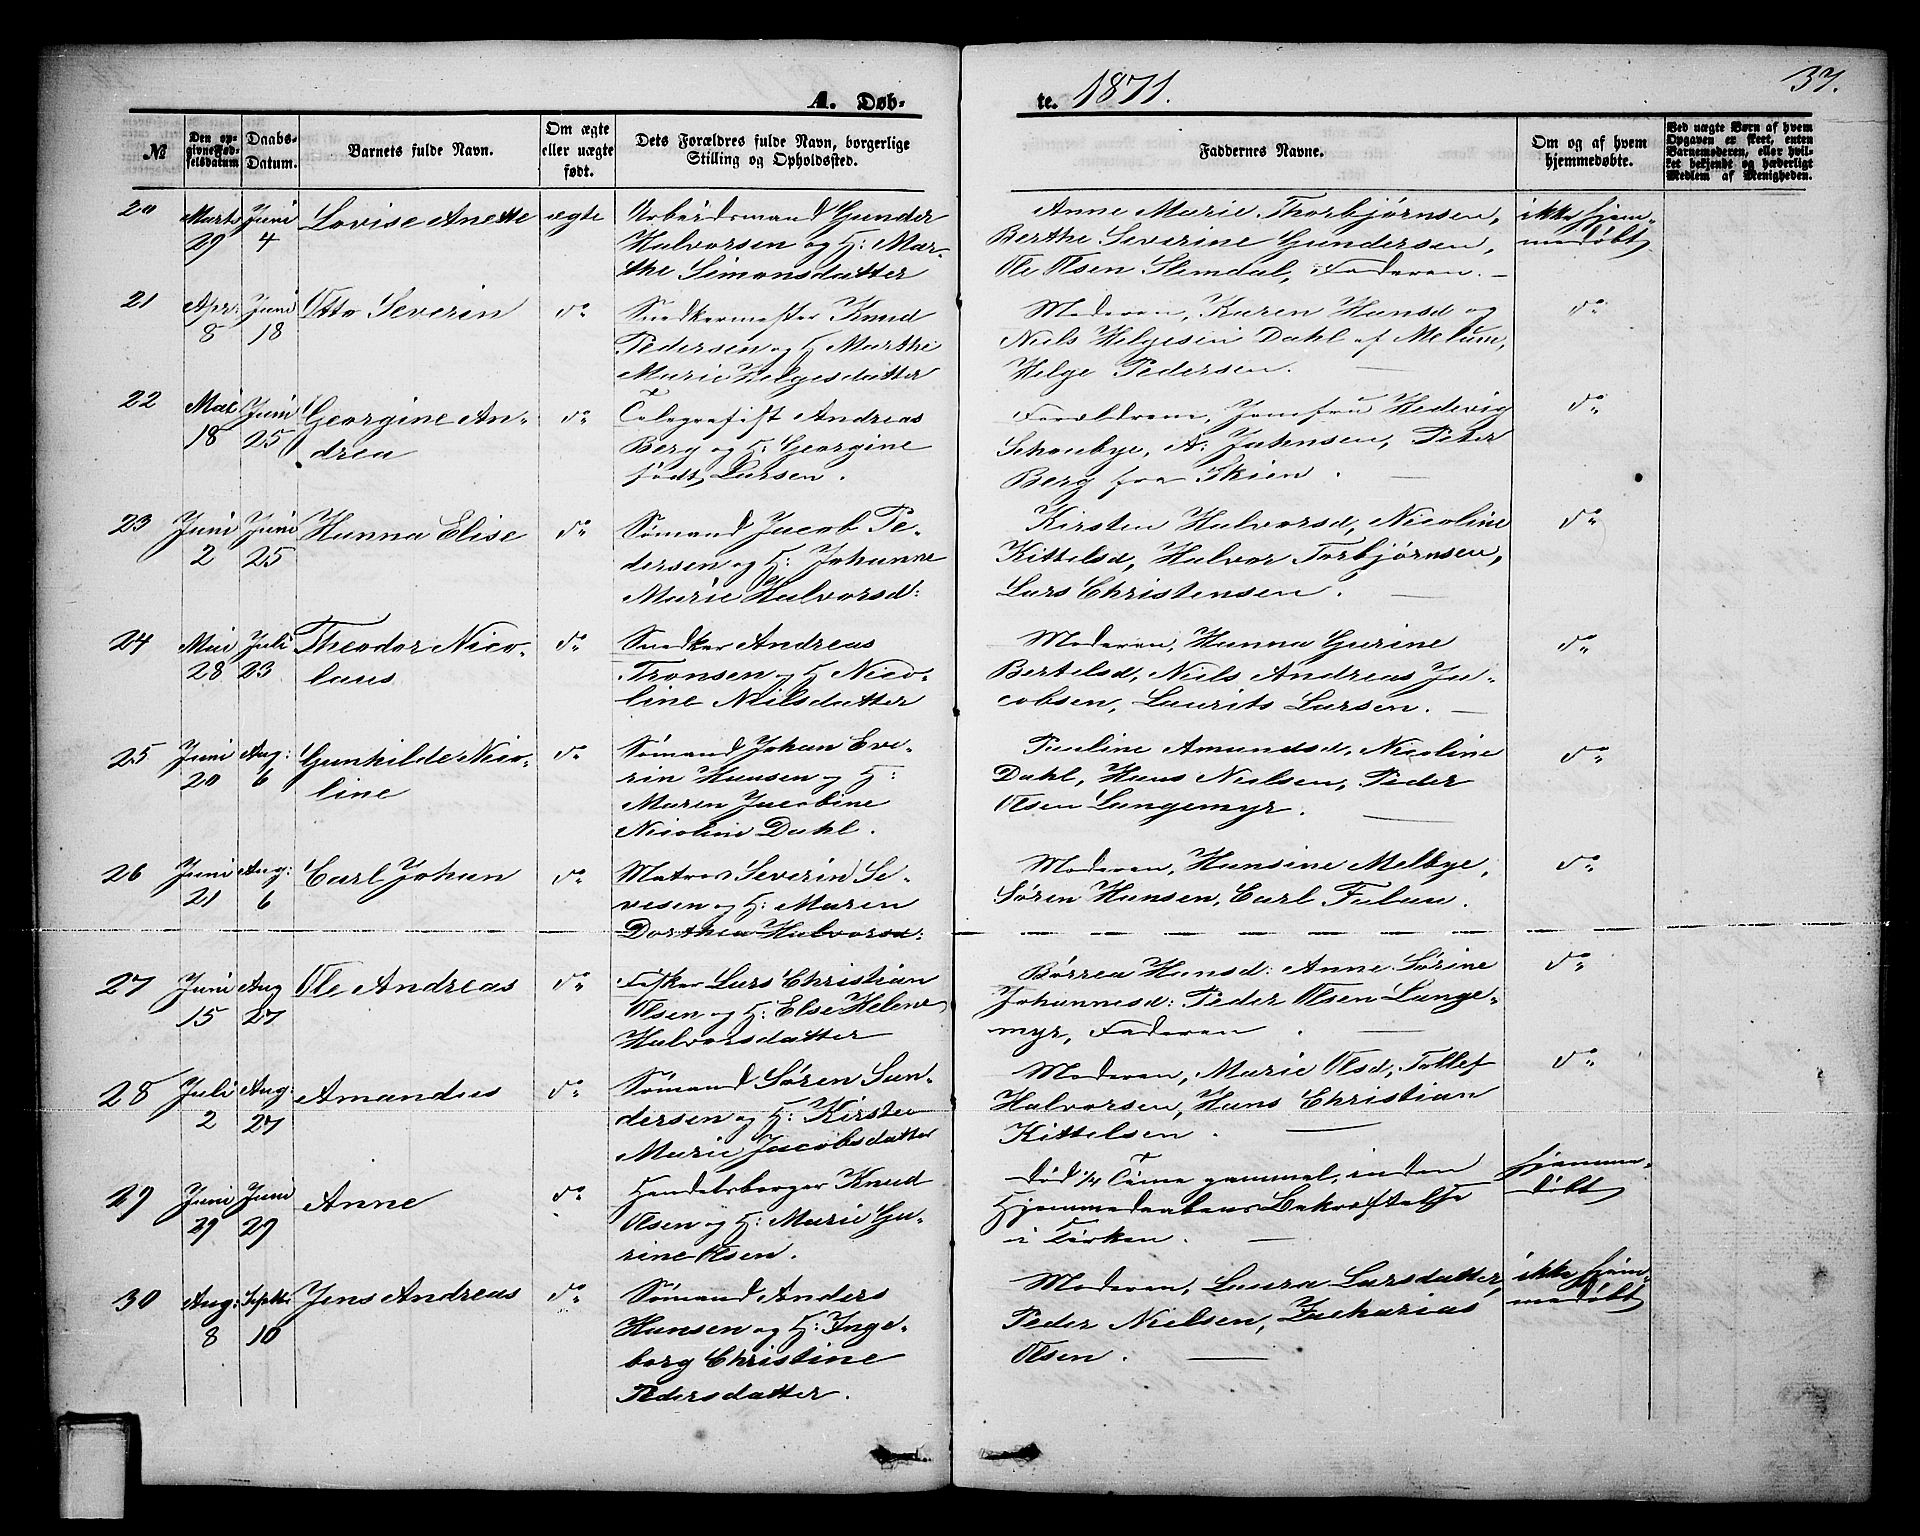 A. Døb-
te. 1871.
37.
№
Den op-
givne Fød-
selsdatum
Daabs-
Datum.
Barnets fulde Navn.
Om ægte
eller uægte
født.
Dets Forældres fulde Navn, borgerlige
Stilling og Opholdssted.
Faddernes Navne.
Om og af hvem
hjemmedøbte.
Ved uægte Børn af hvem
Opgaven er skeet, enten
Barnemoderen, eller hvil-
ket bekjendt og hæderligt
Medlem af Menigheden.
20
Marts
29
Juni
4
Lovise Anette
ægte
Arbeidsmand Gunder
Halvorsen og H: Mar-
the Simonsdatter
Anne Marie Thorbjørnsen,
Berthe Severine Gundersen,
Ole Olsen Slemdal, Faderen. —
ikke hjem-
medøbt
21
Apr:
8
Juni
18
Otto Severin
do
Snedkermester Knud
Pedersen og H Marthe
Marie Helgesdatter
Moderen, Karen Hansd og
Niels Helgesen Dahl af Melum,
Helge Pedersen. —
do
22
Mai
18
Juni
25
Georgine An-
drea
do
Telegrafist Andreas
Berg og H: Georgine
født Larsen.
Forældrene, Jomfru Hedevig
Schoubye, A: Jahnsen, Peter
Berg fra Skien. —
do
23
Juni
2
Juni
25
Hanna Elise
do
Sømand Jacob Pe-
dersen og H: Johanne
Marie Halvorsd:
Kirsten Halvorsd, Nicoline
Kittelsd, Halvor Torbjørnsen,
Lars Christensen. —
do
24
Mai
28
Juli
23
Theodor Nico-
laus
do
Snedker Andreas
Tronsen og H Nico-
line Nielsdatter
Moderen, Hanna Gurine
Bertelsd, Niels Andreas Ja-
cobsen, Laurits Larsen. —
do
25
Juni
20
Aug:
6
Gunhilde Nico-
line
do
Sømand Johan Eve-
rin Hansen og H:
Maren Jacobine
Nicoline Dahl.
Pauline Amundsd, Nicoline
Dahl, Hans Nielsen, Peder
Olsen Langemyr. —
do
26
Juni
21
Aug:
6
Carl Johan
do
Matros Severin Se-
vesen og H: Maren
Dorthea Halvorsd:
Moderen, Hansine Melbye,
Søren Hansen, Carl Falau.
do
27
Juni
15
Aug
27
Ole Andreas
do
Fisker Lars Christian
Olsen og H: Else Helene
Halvorsdatter
Børrea Hansd: Anne Sørine
Johannesd: Peder Olsen Lange-
myr, Faderen. —
do
28
Juli
2
Aug:
27
Amandus
do
Sømand Søren San-
dersen og H: Kirsten
Marie Jacobsdatter
Moderen, Marie Olsd, Tollef
Halvorsen, Hans Christian
Kittelsen. —
do
29
Juni
29
Juni
29
Anne
do
Handelsborger Knud
Olsen og H: Marie Gu-
rine Olsen.
Død ¼ Time gammel, inden
Hjemmedaabens Bekræftelse
i Kirken. —
hjemme-
døbt
30
Aug:
8
Septbr
10
Jens Andreas
do
Sømand Anders
Hansen og H: Inge-
borg Christine
Pedersdatter.
Moderen, Laura Larsdatter,
Peder Nielsen, Zacharias
Olsen. —
ikke hjem-
medøbt